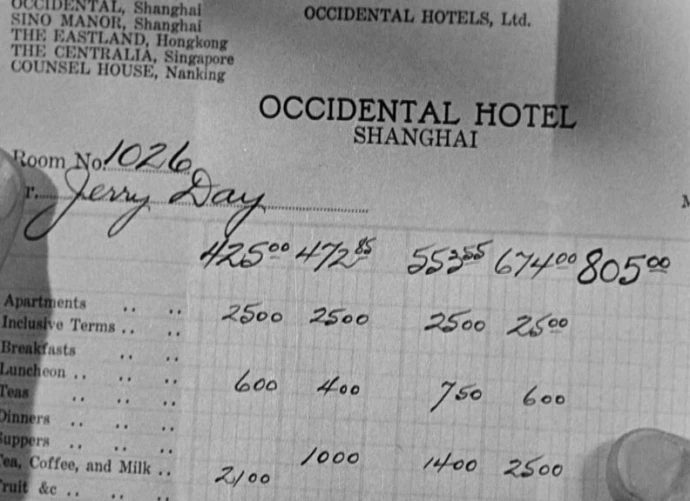 OCCIDENTAL, Shanghai
SINO MANOR, Shanghai
THE EASTLAND, Hongkong
THE CENTRALIA, Singapore
COUNSEL HOUSE, Nanking
OCCIDENTAL HOTELS, Ltd.
OCCIDENTAL HOTEL
SHANGHAI
Room No. 1026
r. Jerry Day
M
425 00 472 85 553 55 674 00 805 00
Apartments .. ..
Inclusive Terms .. .. 2500 2500 2500 25 00
Breakfasts .. ..
Luncheon .. .. ..
Teas .. .. .. 600 400 750 600
Dinners .. .. ..
Suppers .. .. ..
ea, Coffee, and Milk .. 2100 1000 1400 2500
ruit &c .. .. ..